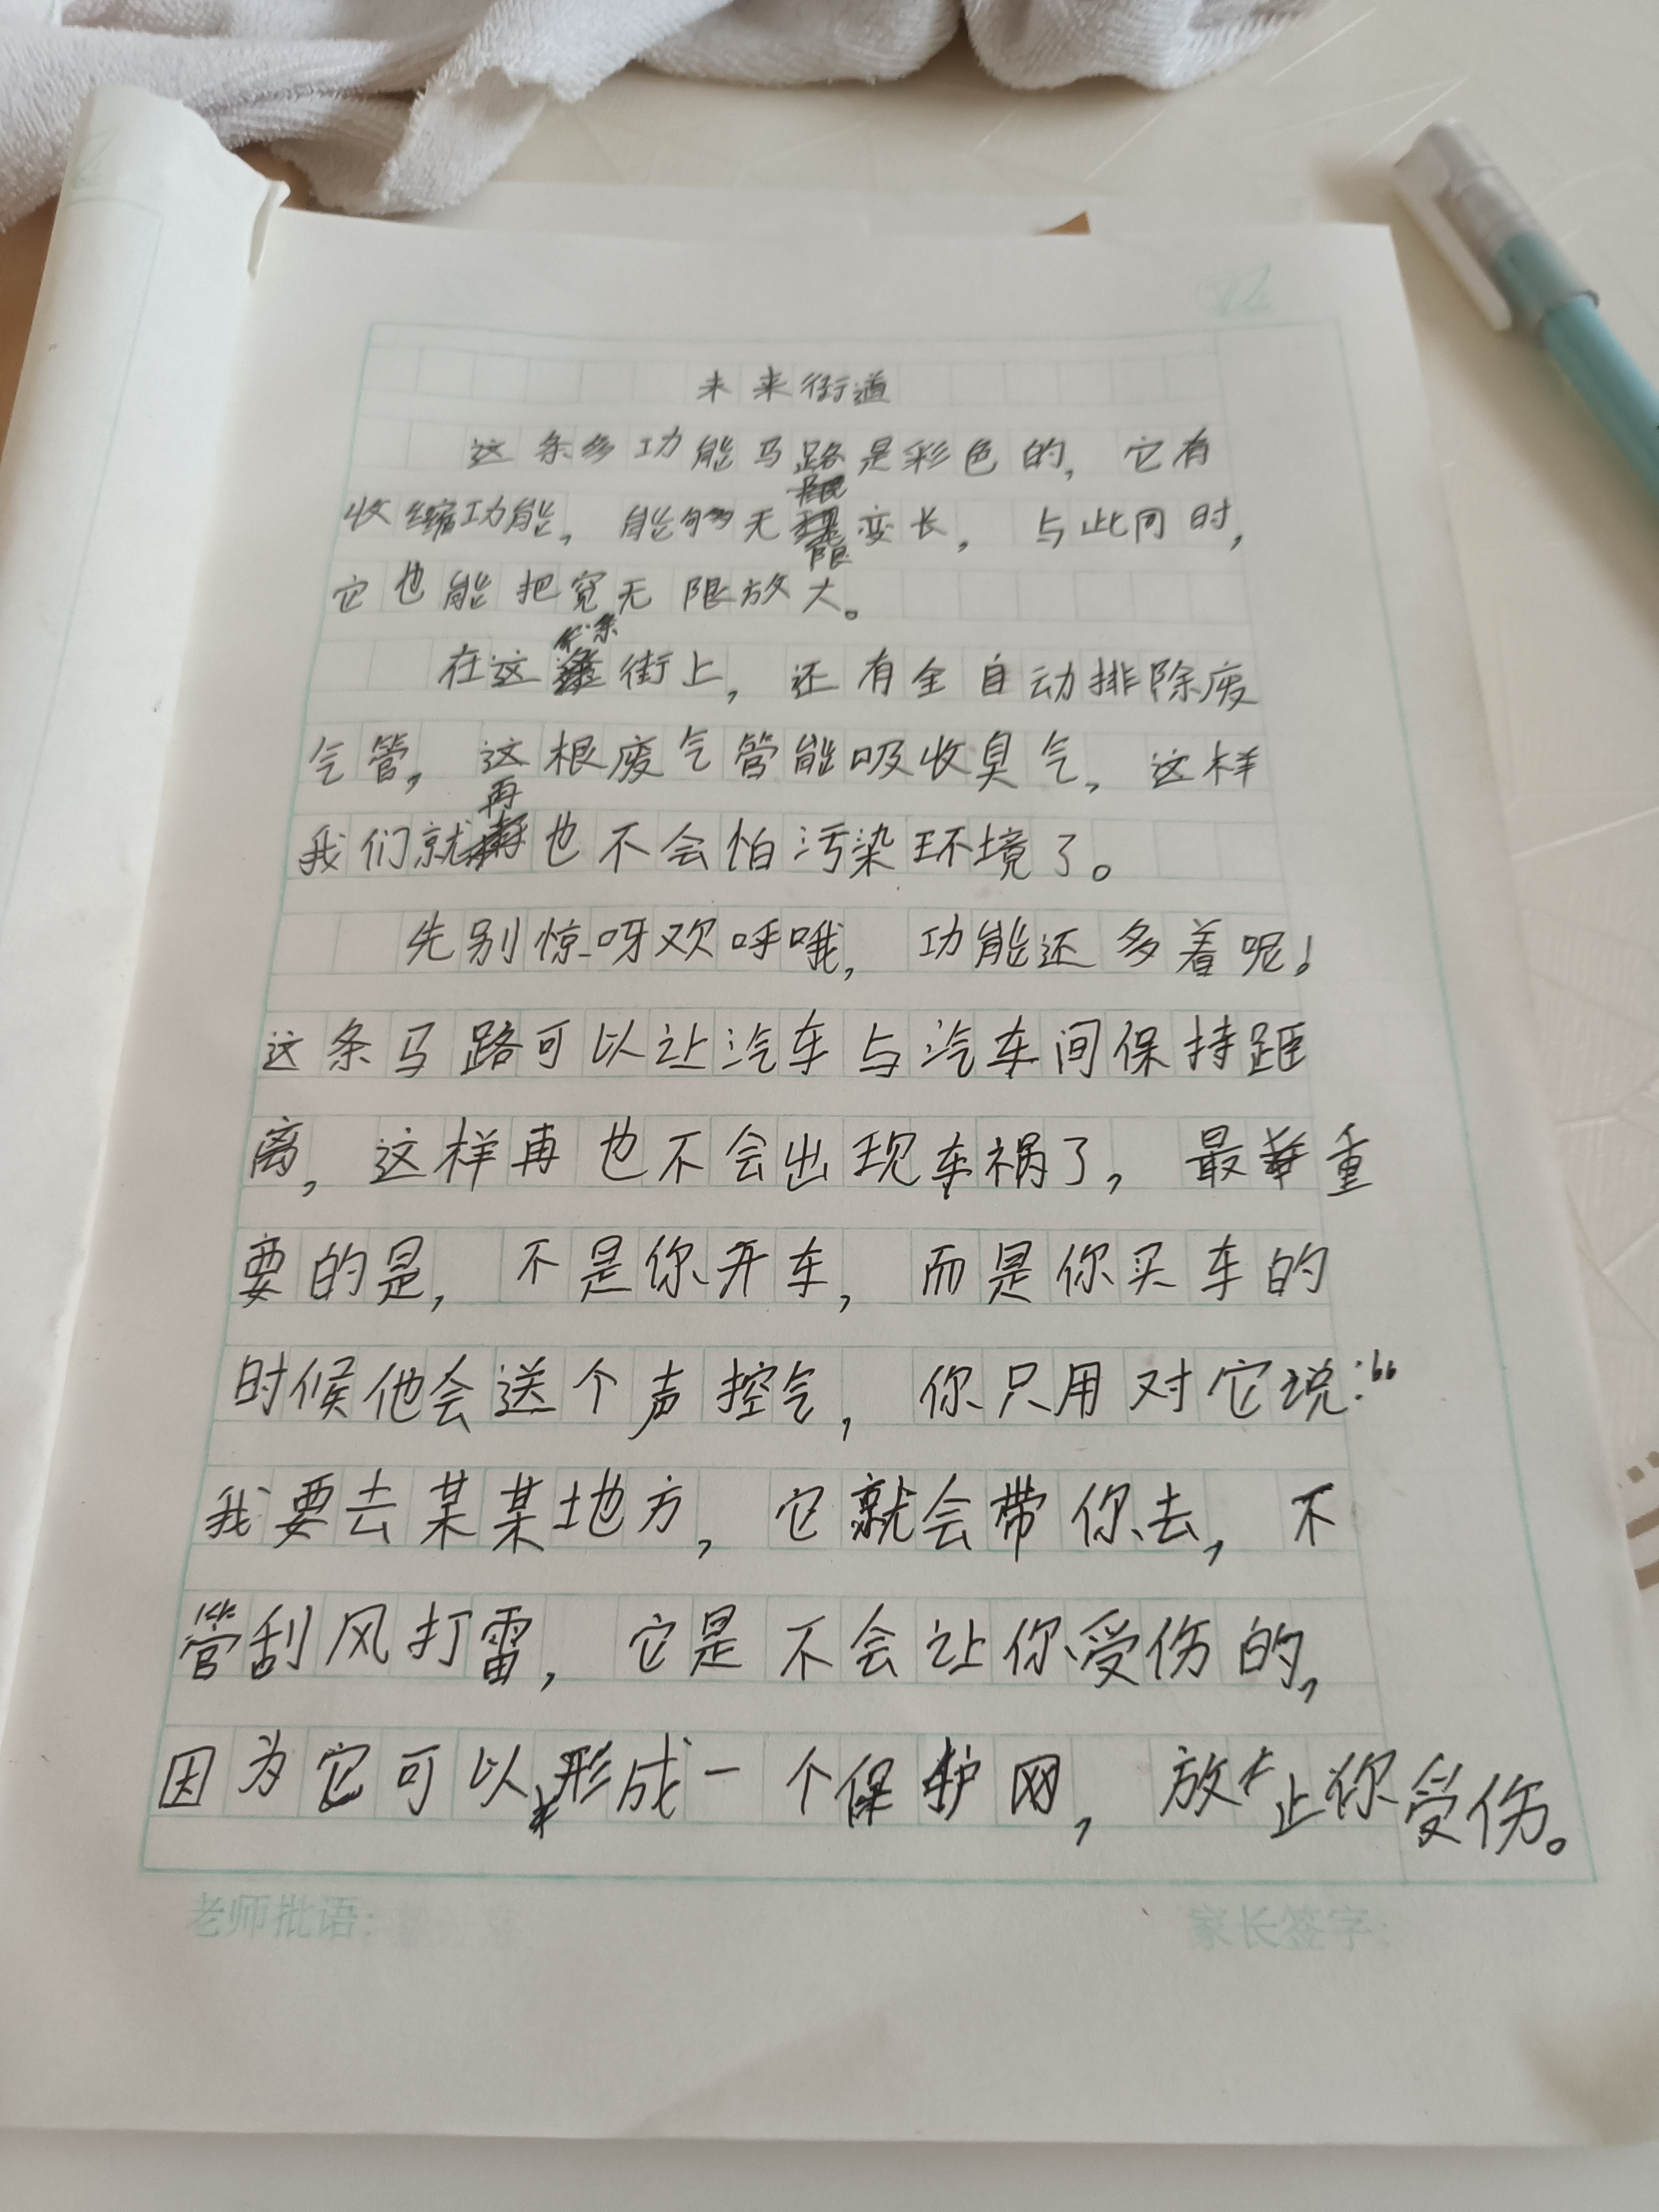 未来街道
这条多功能马路是彩色的，它有
收缩功能，能够无限变长，与此同时，
它也能把宽无限放大。
在这条街上，还有全自动排除废
气管，这根废气管能吸收臭气，这样
我们就再也不会怕污染环境了。
先别惊呀欢呼哦，功能还多着呢！
这条马路可以让汽车与汽车间保持距
离，这样再也不会出现车祸了，最重
要的是，不是你开车，而是你买车的
时候他会送个声控气，你只用对它说：“
我要去某某地方，它就会带你去，不
管刮风打雷，它是不会让你受伤的，
因为它可以形成一个保护网，放止你受伤。
老师批语：
家长签字：